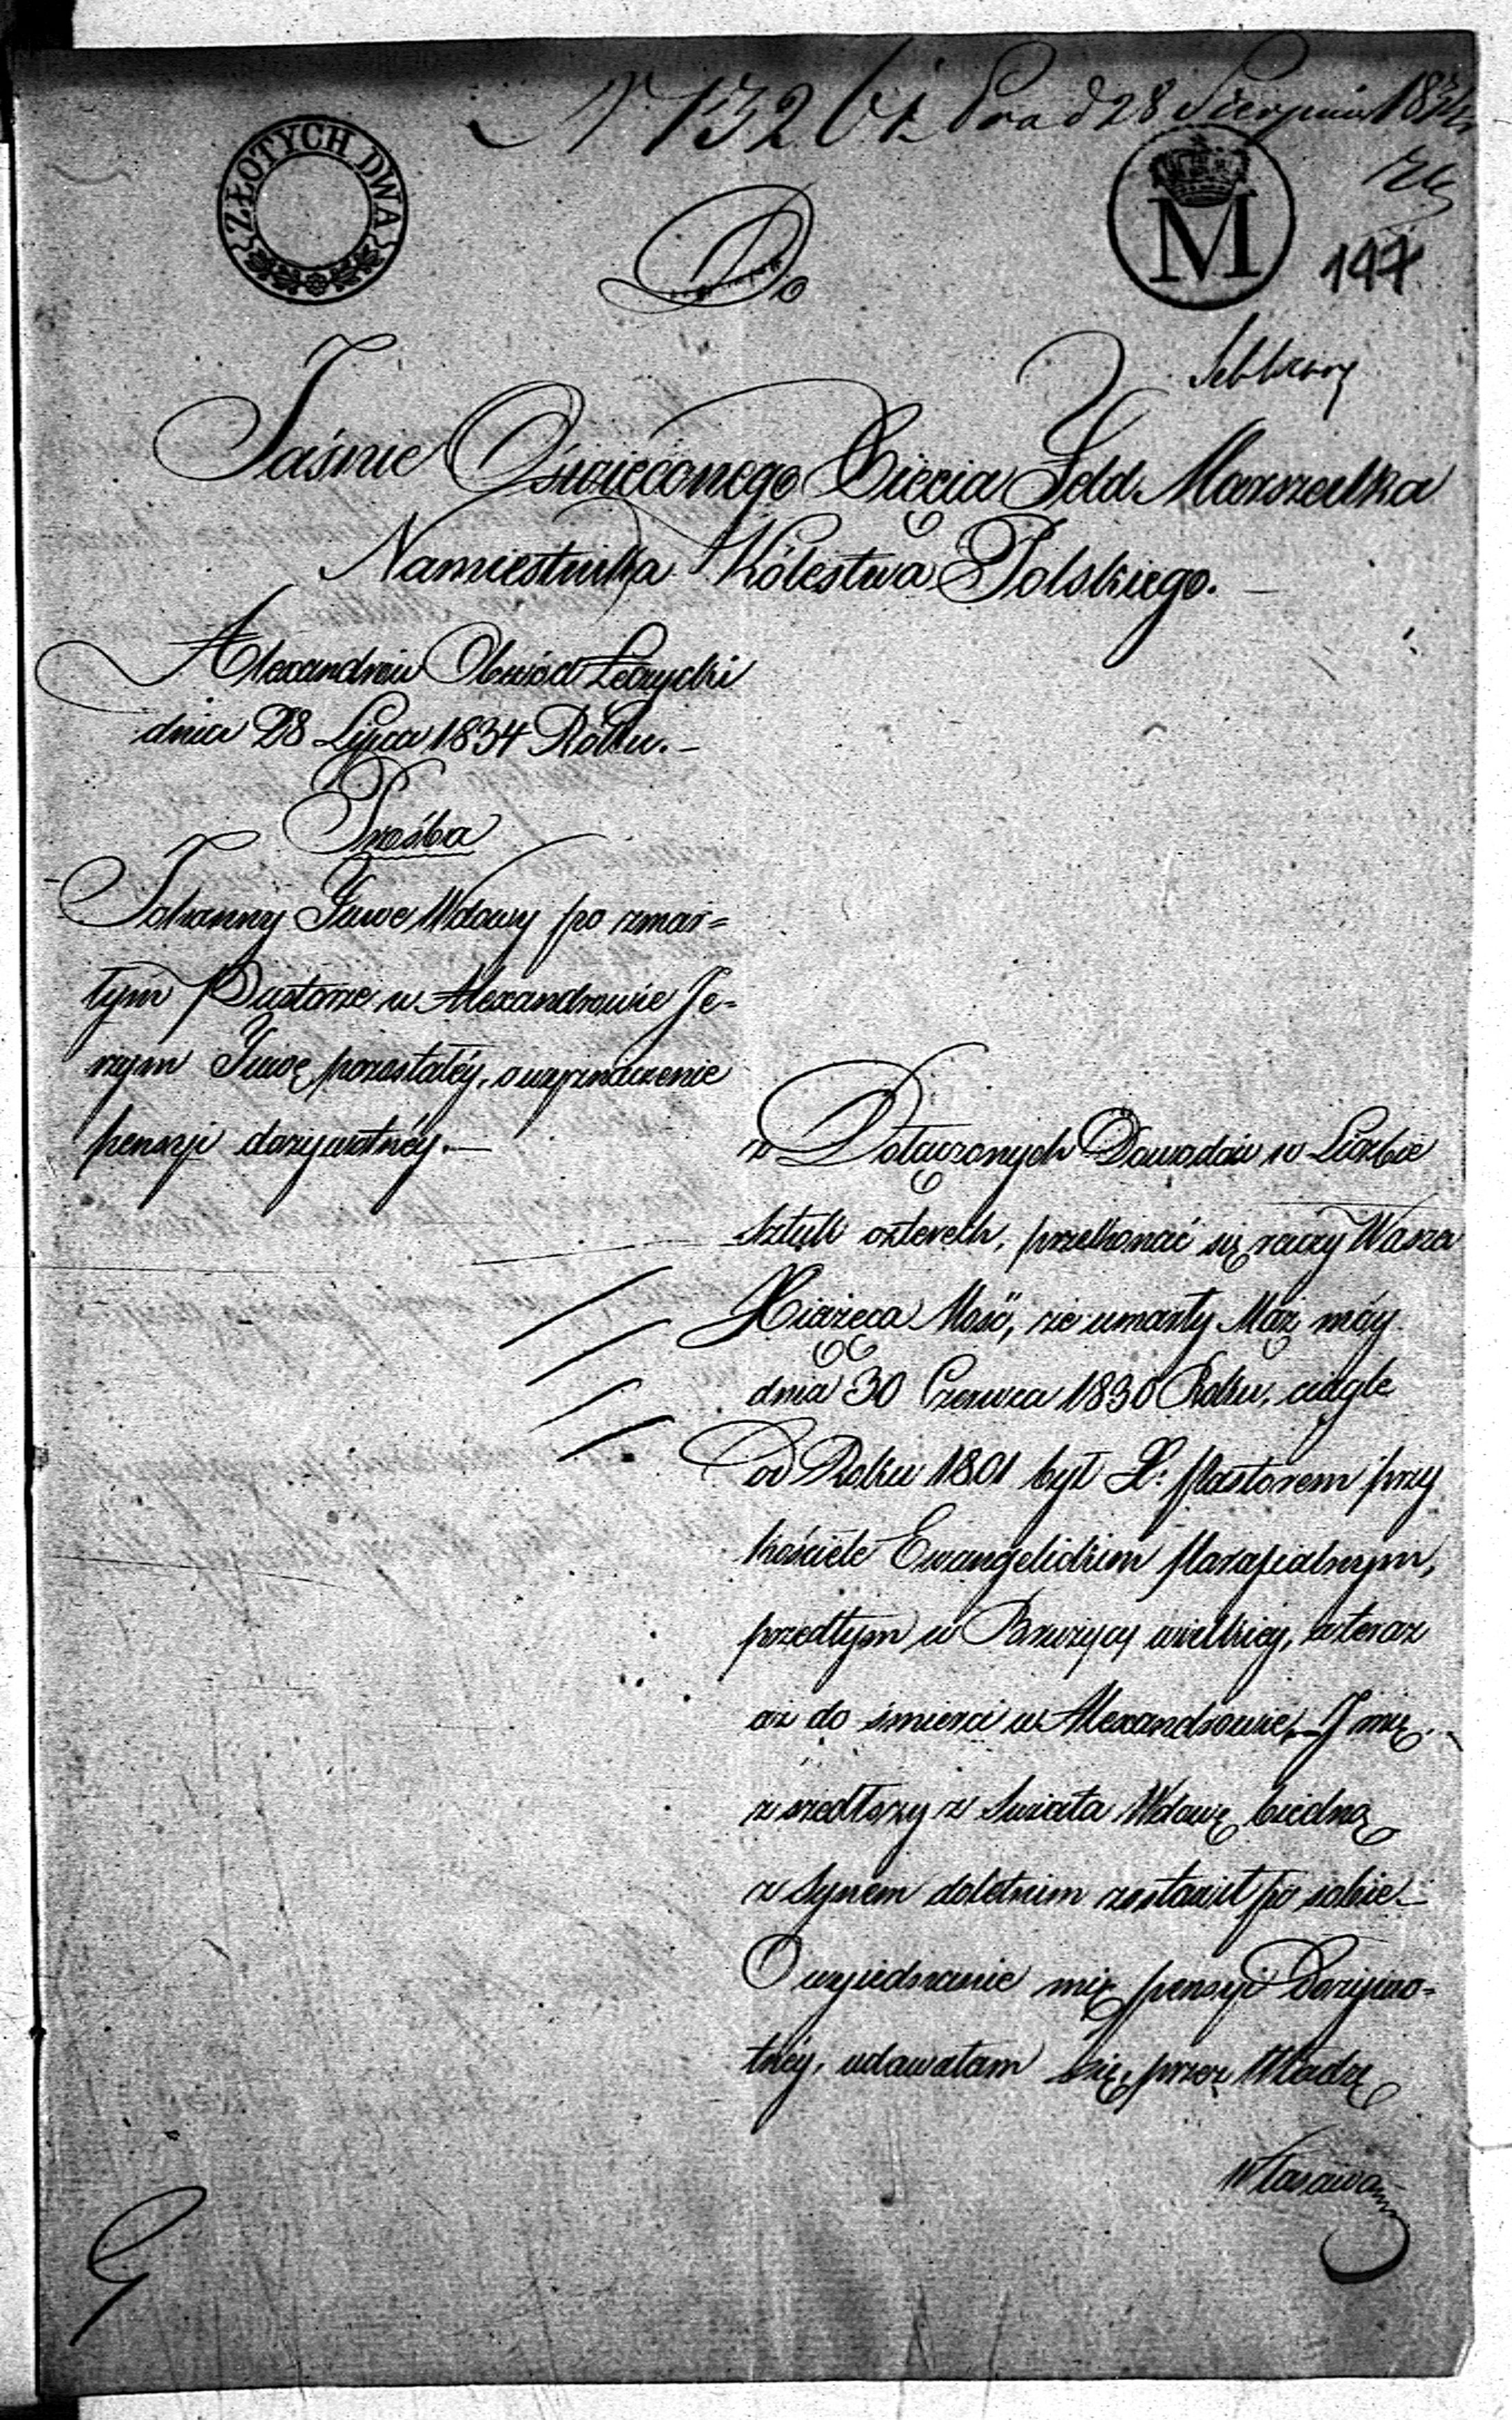 N 13261 Prad 28 Sierpnia 1834
ZŁOTYCH DWA
M
147
Do
Jaśnie Oświęconego Xięcia Feld Marszałka
Namiestnika Królestwa Polskiego.
Alexandrów Obwód Łęczycki
dnia 28 Lipca 1834 Roku.
Prośba
Johanny Tuwe Wdowy po zmar=
łym Pastorze w Alexandrowie Je=
rzym Tuwe pozostałéy, o wyznaczenie
pensyi dożywotnéy.
z Dołączonych Dowodów w Liczbie
sztuk czterech, przekonać się raczy Wasza
Xiążęca Mość, że umarły Mąż móy
dnia 30 Czerwca 1830 Roku, ciągle
od Roku 1801 był X. Pastorem przy
kościele Ewangelickim Parafialnym,
przedtym w Brużycy wielkiey, a teraz
aż do śmierci w Alexandrowie. I mię
zszedłszy z Świata Wdowę biedną
z synem doletnim zostawił po sobie
O wyiednanie mię pensyi Dożywo=
tnéy, udawałam się, przez Władzę
Własciwą